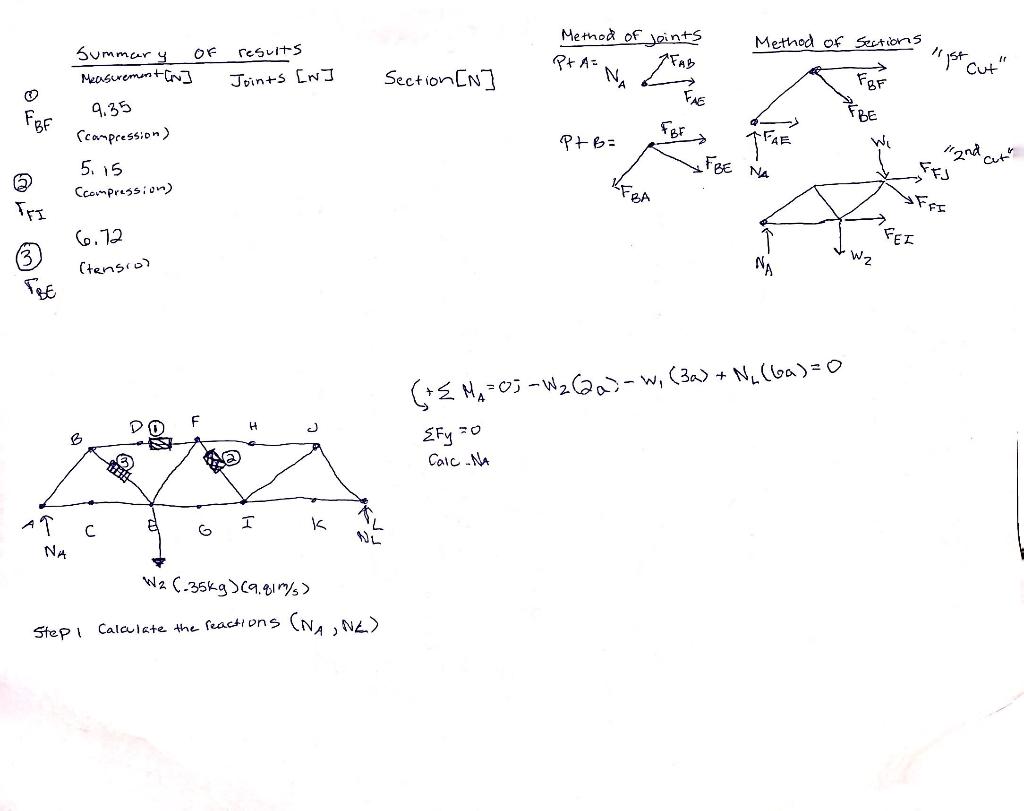 Summary of results
Measurement [N] Joints [N] Section [N]
① F_BF 9.35
(compression)
② F_FI 5.15
(compression)
③ F_BE 6.72
(tensio)
Method of joints
Pt A = N_A F_AB
F_AE
Pt B = F_BF
F_BE
F_BA
Method of Sections
"1st cut"
F_BF
F_BE
F_AE
N_A
W_1 "2nd cut"
F_FJ
F_FI
F_EI
N_A W_2
(+Σ M_A = 0; -W_2(2a) - W_1(3a) + N_L(6a) = 0
ΣFy = 0
Calc. N_A
B D ① F H J
③ ②
A C E G I K L
N_A N_L
W_2 (.35kg)(9.81m/s)
Step 1 Calculate the reactions (N_A, N_L)